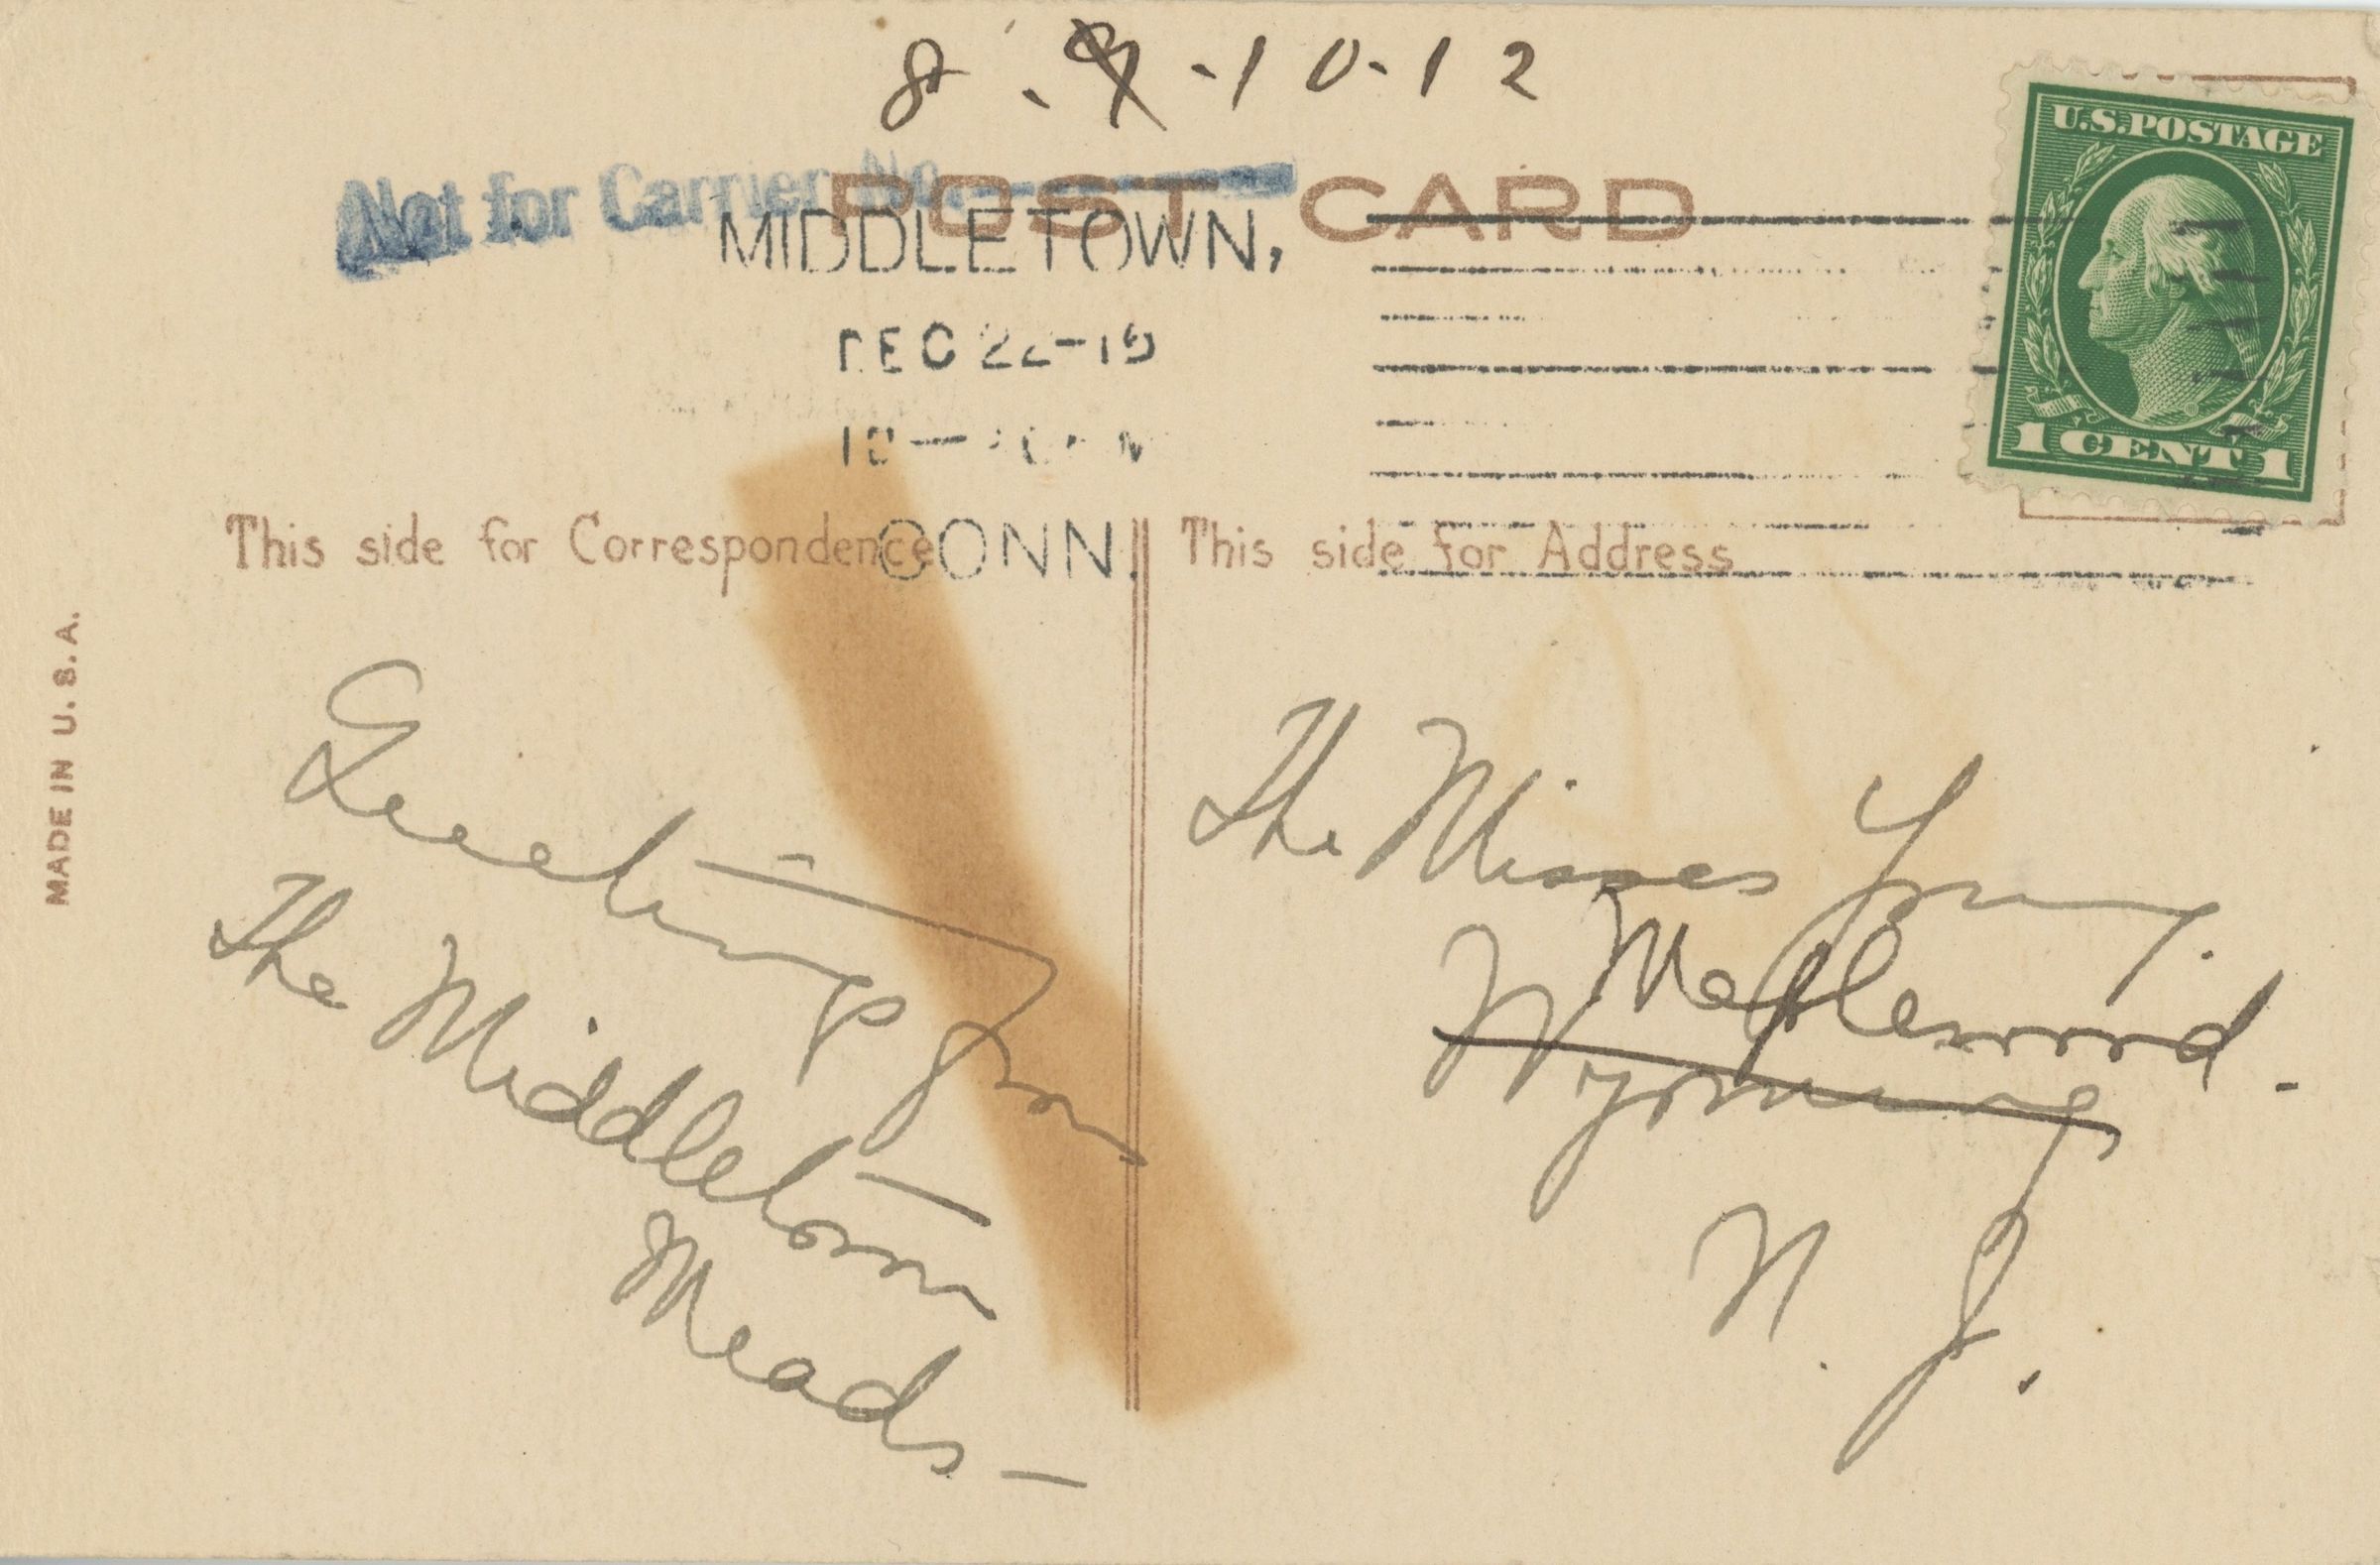 8 . 9 - 10 - 12
Not for Carrier No.
POST CARD
U.S. POSTAGE
1 CENT 1
MIDDLETOWN,
DEC 22-15
CONN.
This side for Correspondence
This side for Address
MADE IN U. S. A.
Greetings from
The Middletown
Meads —
The Misses Young.
Maplewood.
Wyoming
N. J.